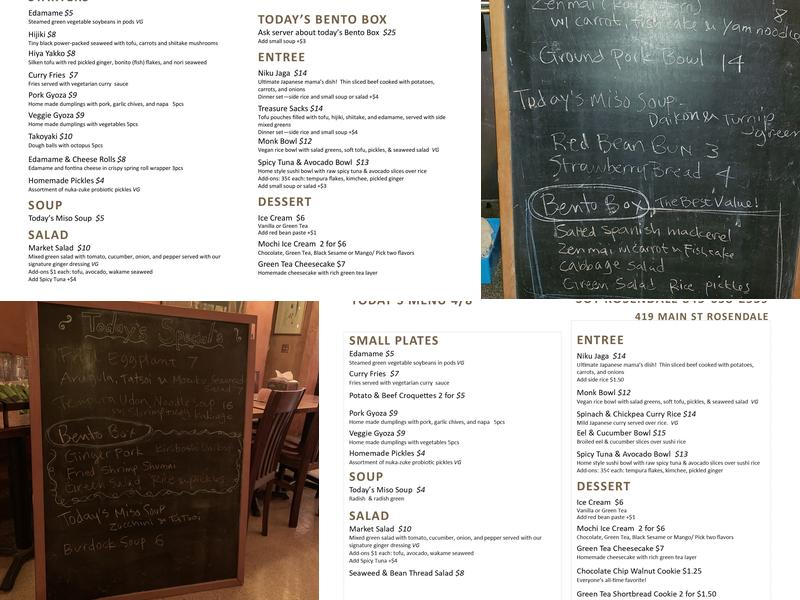 Edamame $5
Steamed green vegetable soybeans in pods VG
Hijiki $8
Tiny black power-packed seaweed with tofu, carrots and shiitake mushrooms
Hiya Yakko $8
Silken tofu with red pickled ginger, bonito (fish) flakes, and nori seaweed
Curry Fries $7
Fries served with vegetarian curry sauce
Pork Gyoza $9
Home made dumplings with pork, garlic chives, and napa 5pcs
Veggie Gyoza $9
Home made dumplings with vegetables 5pcs
Takoyaki $10
Dough balls with octopus 5pcs
Edamame & Cheese Rolls $8
Edamame and fontina cheese in crispy spring roll wrapper 3pcs
Homemade Pickles $4
Assortment of nuka-zuke probiotic pickles VG
SOUP
Today's Miso Soup $5
SALAD
Market Salad $10
Mixed green salad with tomato, cucumber, onion, and pepper served with our
signature ginger dressing VG
Add-ons $1 each: tofu, avocado, wakame seaweed
Add Spicy Tuna +$4
TODAY'S BENTO BOX
Ask server about today's Bento Box $25
Add small soup +$3
ENTREE
Niku Jaga $14
Ultimate Japanese mama's dish! Thin sliced beef cooked with potatoes,
carrots, and onions
Dinner set—side rice and small soup or salad +$4
Treasure Sacks $14
Tofu pouches filled with tofu, hijiki, shiitake, and edamame, served with side
mixed greens
Dinner set—side rice and small soup or salad +$4
Monk Bowl $12
Vegan rice bowl with salad greens, soft tofu, pickles, & seaweed salad VG
Spicy Tuna & Avocado Bowl $13
Home style sushi bowl with raw spicy tuna & avocado slices over rice
Add-ons: 35¢ each: tempura flakes, kimchee, pickled ginger
Add small soup or salad +$3
DESSERT
Ice Cream $6
Vanilla or Green Tea
Add red bean paste +$1
Mochi Ice Cream 2 for $6
Chocolate, Green Tea, Black Sesame or Mango/ Pick two flavors
Green Tea Cheesecake $7
Homemade cheesecake with rich green tea layer
Zenmai 8
w/ carrot, fishcake & Yam noodle
Ground Pork Bowl 14
Today's Miso Soup-
Daikon & Turnip
green
Red Bean Bun 3
Strawberry Bread 4
Bento Box The Best Value!
Salted Spanish mackerel
Zenmai w carrot & Fishcake
Cabbage Salad
Green Salad Rice pickles
Today's Specials
Fried Eggplant 7
Arugula, Tatsoi & Mozuku Seaweed
Salad
Tempura Udon Noodle Soup 16
w/ Shrimp
Bento Box
Ginger Pork
Fried Shrimp Shumai
Green Salad Rice & pickles
Today's Miso Soup
Zucchini & Tatsoi
Burdock Soup 6
TODAY'S MENU 4/8
SMALL PLATES
Edamame $5
Steamed green vegetable soybeans in pods VG
Curry Fries $7
Fries served with vegetarian curry sauce
Potato & Beef Croquettes 2 for $5
Pork Gyoza $9
Home made dumplings with pork, garlic chives, and napa 5pcs
Veggie Gyoza $9
Home made dumplings with vegetables 5pcs
Homemade Pickles $4
Assortment of nuka-zuke probiotic pickles VG
SOUP
Today's Miso Soup $4
Radish & radish green
SALAD
Market Salad $10
Mixed green salad with tomato, cucumber, onion, and pepper served with our
signature ginger dressing VG
Add-ons $1 each: tofu, avocado, wakame seaweed
Add Spicy Tuna +$4
Seaweed & Bean Thread Salad $8
419 MAIN ST ROSENDALE
ENTREE
Niku Jaga $14
Ultimate Japanese mama's dish! Thin sliced beef cooked with potatoes,
carrots, and onions
Add side rice $1.50
Monk Bowl $12
Vegan rice bowl with salad greens, soft tofu, pickles, & seaweed salad VG
Spinach & Chickpea Curry Rice $14
Mild Japanese curry served over rice. VG
Eel & Cucumber Bowl $15
Broiled eel & cucumber slices over sushi rice
Spicy Tuna & Avocado Bowl $13
Home style sushi bowl with raw spicy tuna & avocado slices over sushi rice
Add-ons: 35¢ each: tempura flakes, kimchee, pickled ginger
DESSERT
Ice Cream $6
Vanilla or Green Tea
Add red bean paste +$1
Mochi Ice Cream 2 for $6
Chocolate, Green Tea, Black Sesame or Mango/ Pick two flavors
Green Tea Cheesecake $7
Homemade cheesecake with rich green tea layer
Chocolate Chip Walnut Cookie $1.25
Everyone's all-time favorite!
Green Tea Shortbread Cookie 2 for $1.50